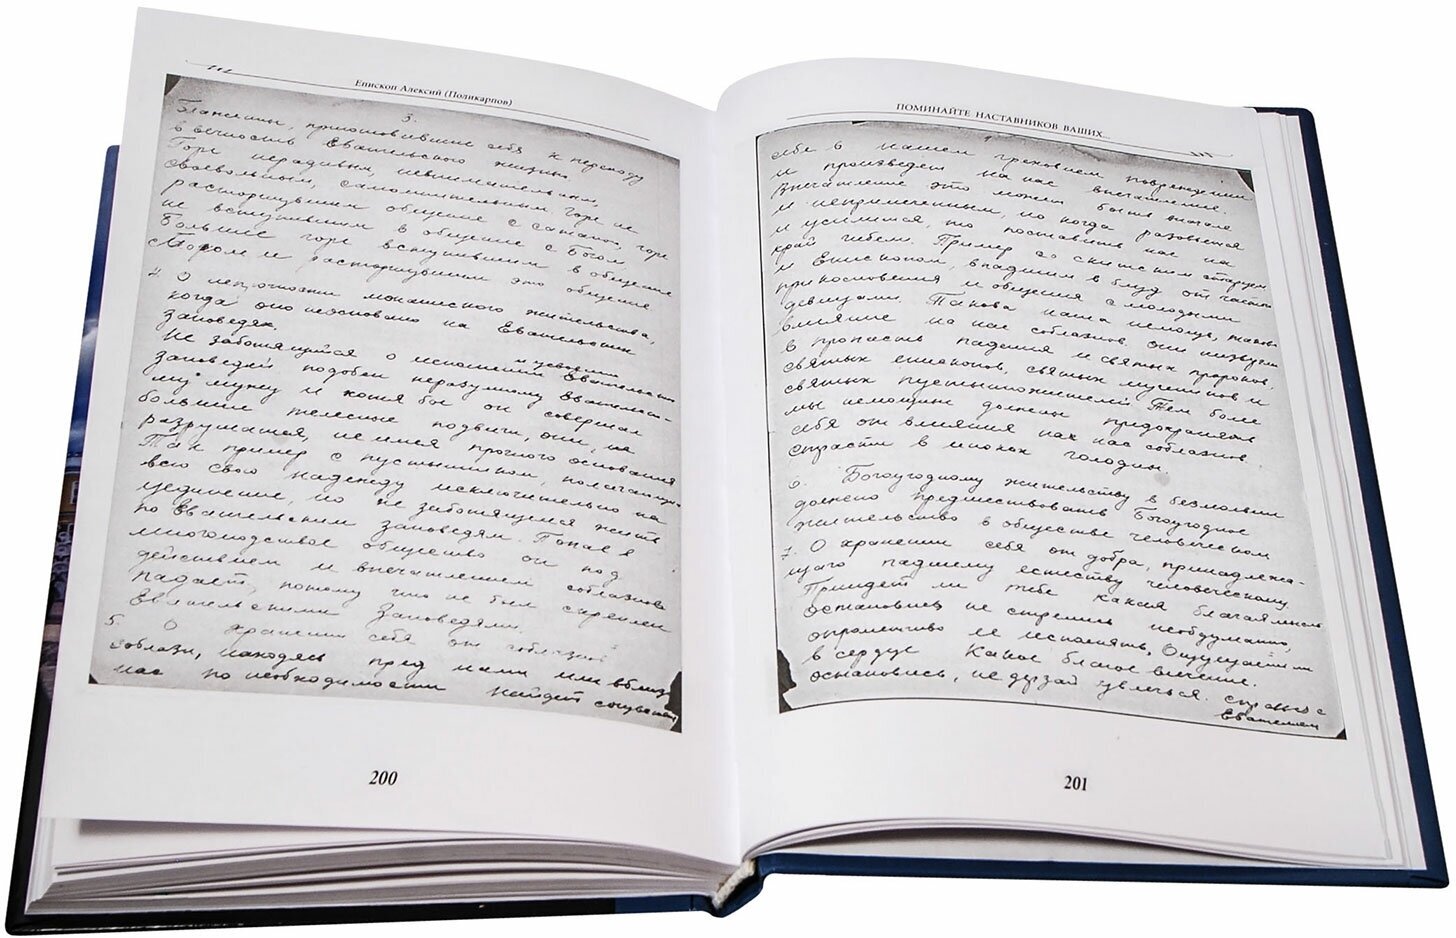 Епископ Алексий (Поликарпов)
3.
Блаженны, приготовившие себя к переходу
в вечность Евангельскою жизнью
Горе нерадивым, невнимательным,
своевольным, самомнительным. Горе не
расторгнувшим общение с сатаной, горе
не вступившим в общение с Богом.
Большее горе вступившим в общение
с Богом и расторгнувшим это общение
4. О непрочности монашеского жительства,
когда оно неосновано на Евангельских
заповедях.
Не заботящийся о исполнении и усвоении Евангельских
заповедей подобен неразумному Евангельско-
му мужу и хотя бы он совершал
большие телесные подвиги, они, не
разрушатся, не имея прочного основания
Так пример с пустынником, полагающим
всю свою надежду исключительно на
уединение, но не заботящемся жить
по Евангельским заповедям. Попав в
многолюдное общество он под
действием и впечатлением соблазнов
падает, потому что не был скреплен
Евангельскими Заповедями.
5. О хранении себя от соблазнов
соблазн, находясь пред нами или вблизи
нас по необходимости найдет сочувствие
200
ПОМИНАЙТЕ НАСТАВНИКОВ ВАШИХ...
себе в нашем греховном повреждении
и произведет на нас впечатление.
Впечатление это может быть вначале
и неприметным, но когда разовьется
и усилится, то поставит нас на
край гибели. Пример со скитским старцем
и Епископом, впадшим в блуд от частого
прикосновения и общения с молодыми
девицами. Такова наша немощь, таково
влияние на нас соблазнов. Они низвергли
в пропасть падения и святых пророков,
святых епископов, святых мучеников и
святых пустынножителей. Тем более
мы немощные должны предохранять
себя от влияния на нас соблазнов.
страсти в иноках голодны.
6. Богоугодному жительству в безмолвии
должно предшествовать Богоугодное
жительство в обществе человеческом
7. О хранении себя от добра, принадлежа-
щаго падшему естеству человеческому.
Придет ли тебе какая благая мысль
остановись не стремись необдуманно,
опрометчиво ее исполнять, Ощущается ли
в сердце какое благое влечение.
остановись, не дерзай увлечься. справься с
Евангелием
201